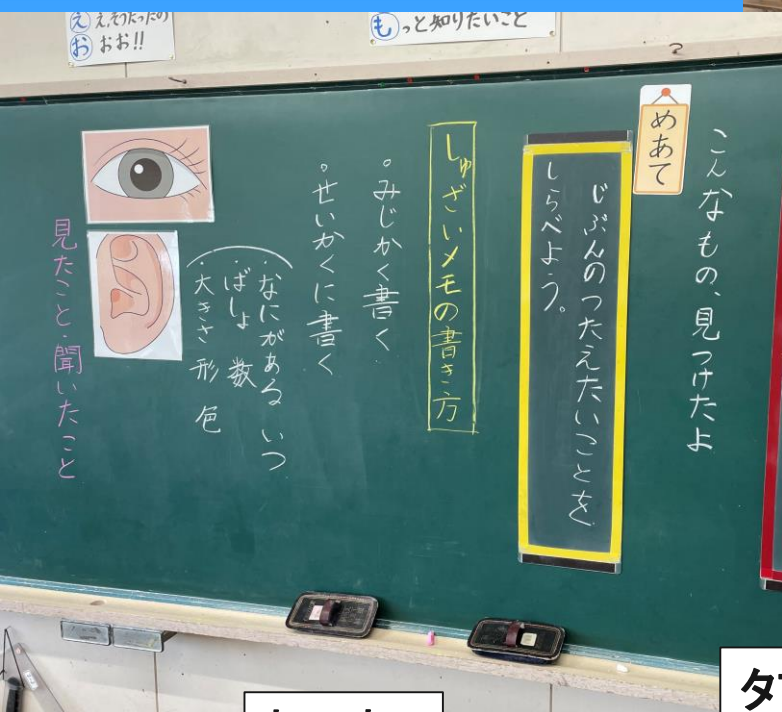 え え、そうだったの
お おお!!
も っと知りたいこと
こんなもの、見つけたよ
めあて
じぶんのつたえたいことを
しらべよう。
しゅざいメモの書き方
。みじかく書く
。せいかくに書く
・なにがある いつ
・ばしょ 数
・大きさ 形 色
見たこと・聞いたこと